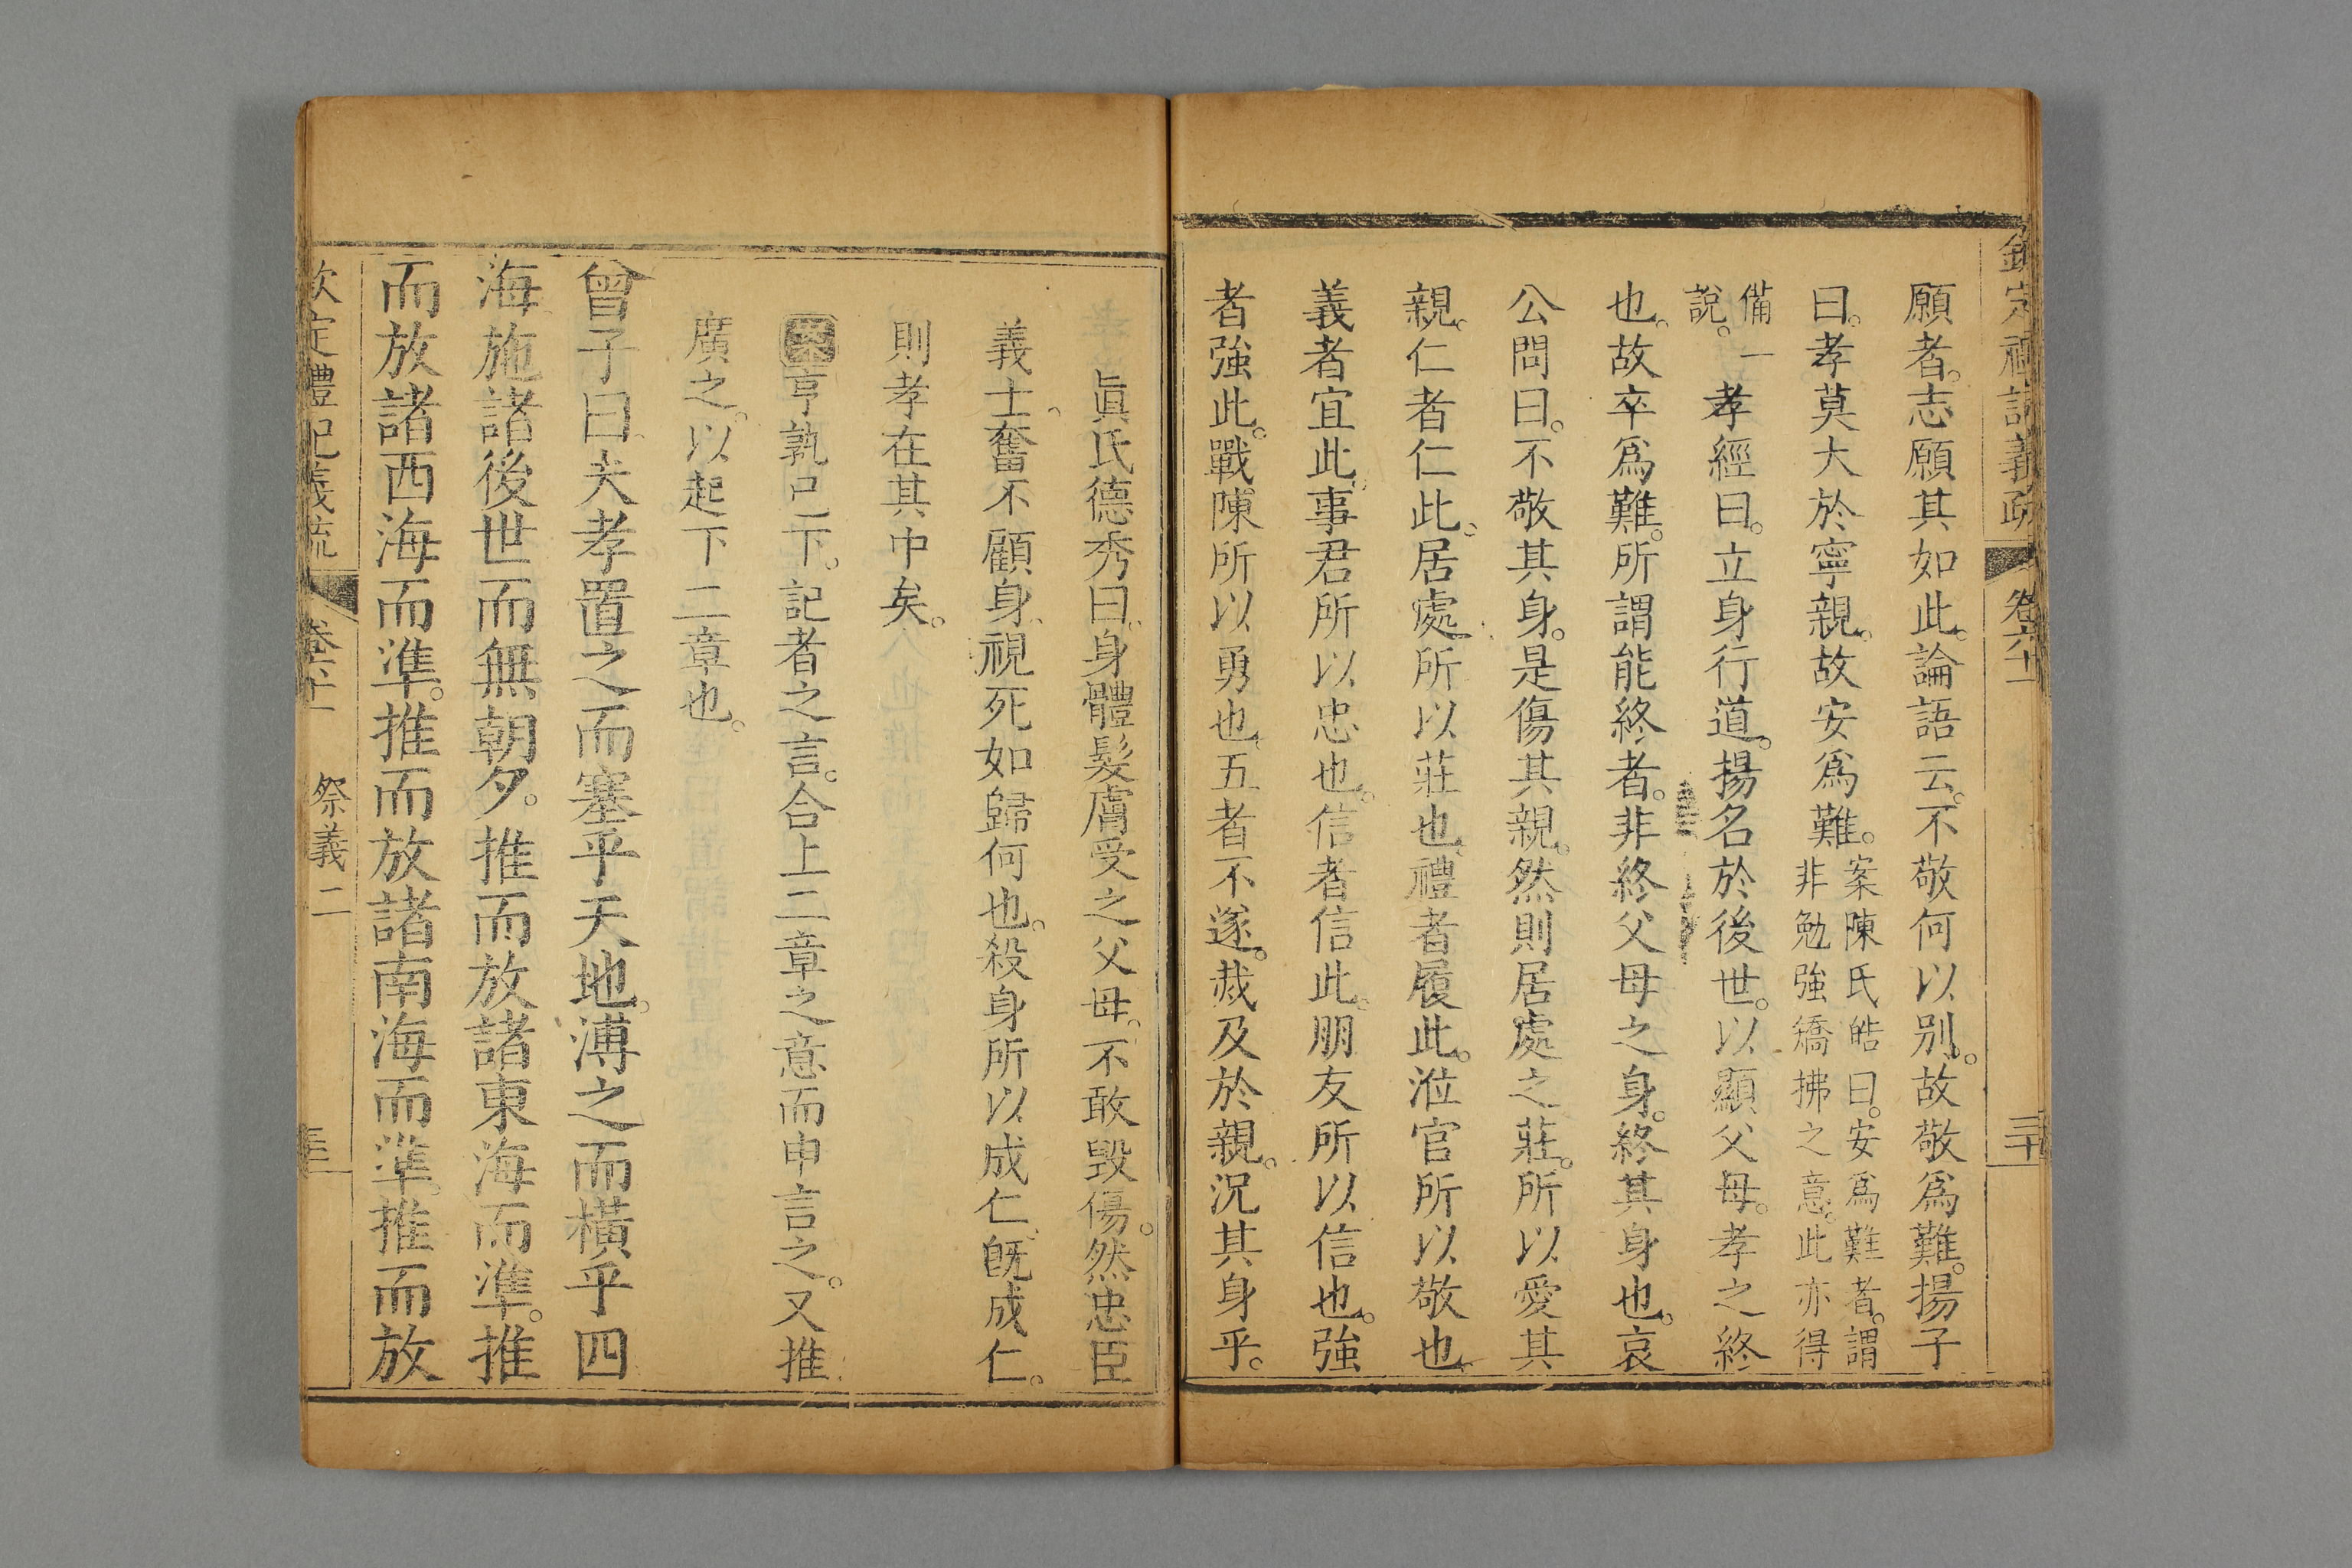 欽定禮記義疏 卷六十一 三十
願者。志願其如此。論語云。不敬何以別。故敬爲難。揚子
曰。孝莫大於寧親。故安爲難。案陳氏皓曰。安爲難者。謂非勉強矯拂之意。此亦得
備一說。孝經曰。立身行道。揚名於後世。以顯父母。孝之終
也。故卒爲難。所謂能終者。非終父母之身。終其身也。哀
公問曰。不敬其身。是傷其親。然則居處之莊。所以愛其
親。仁者仁此。居處所以莊也。禮者履此。涖官所以敬也。
義者宜此。事君所以忠也。信者信此。朋友所以信也。強
者強此。戰陳所以勇也。五者不遂。烖及於親。況其身乎。
眞氏德秀曰。身體髮膚受之父母。不敢毀傷。然忠臣
義士奮不顧身。視死如歸何也。殺身所以成仁。旣成仁。
則孝在其中矣。
案亨孰已下。記者之言。合上二章之意而申言之。又推
廣之。以起下二章也。
曾子曰夫孝置之而塞乎天地。溥之而橫乎四
海施諸後世而無朝夕。推而放諸東海而準。推
而放諸西海而準。推而放諸南海而準。推而放
欽定禮記義疏 卷六十一 祭義二